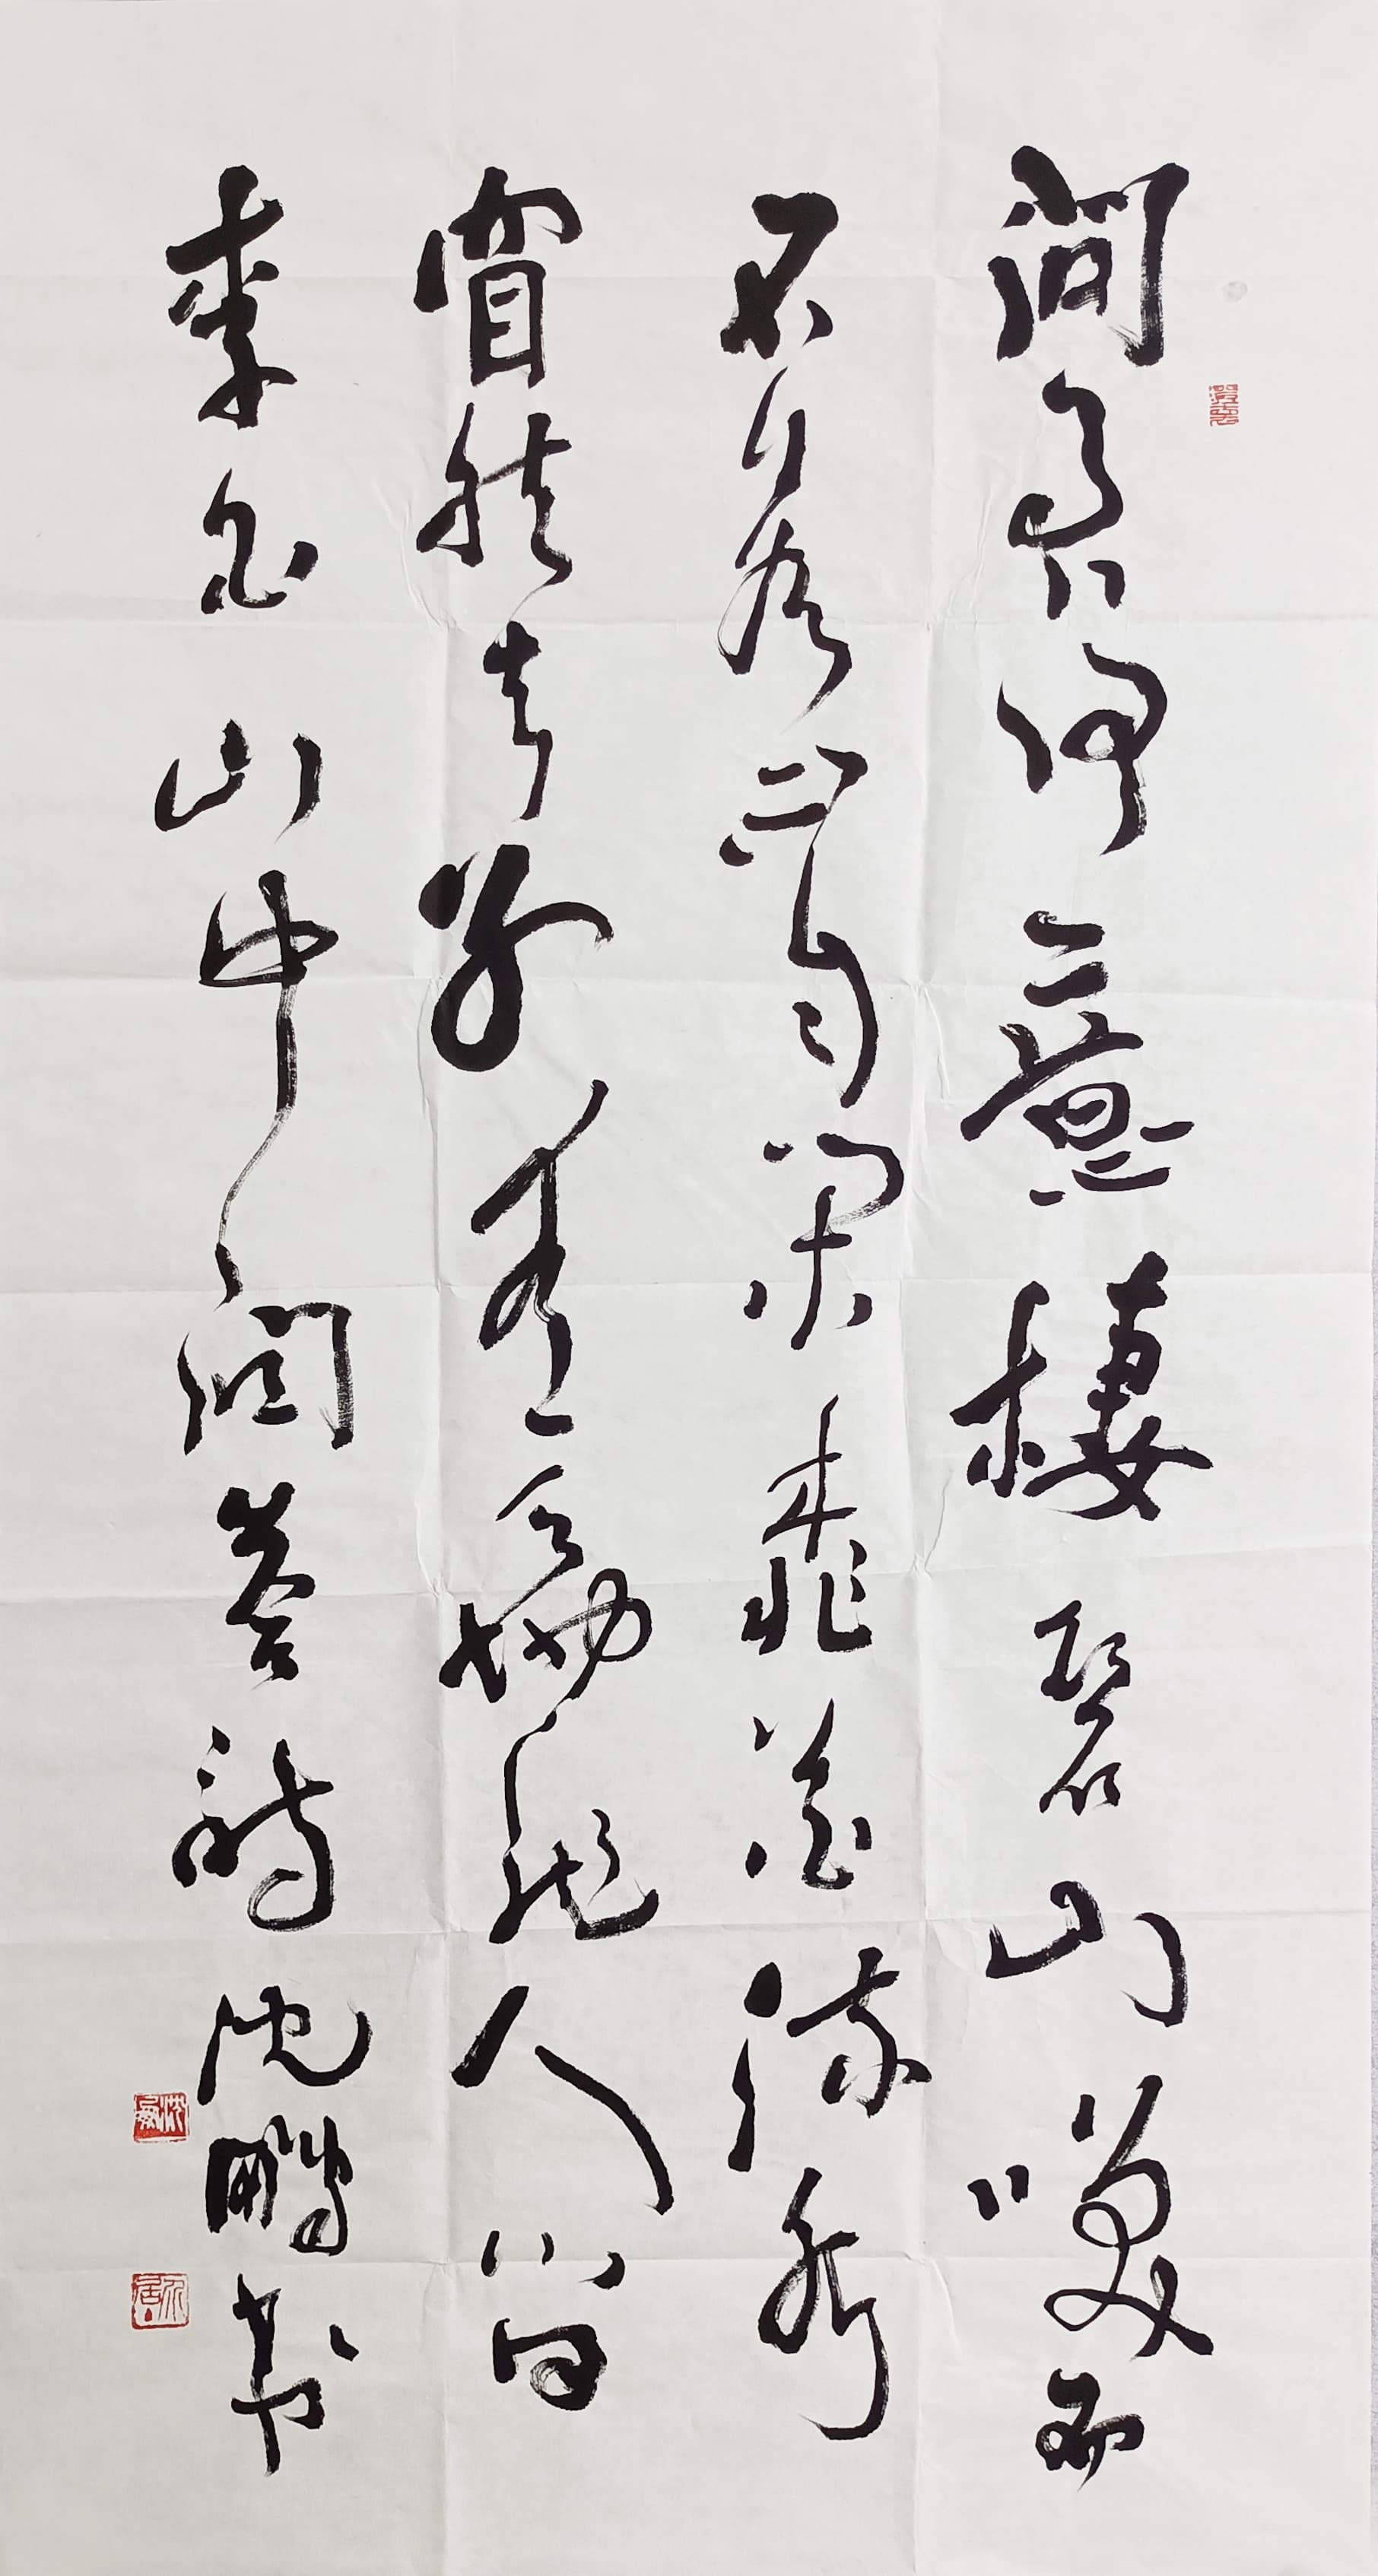 問余何意棲碧山笑而
不答心自閑桃花流水
窅然去別有天地非人間
李白山中問答詩沈鵬書
沈鵬
介居